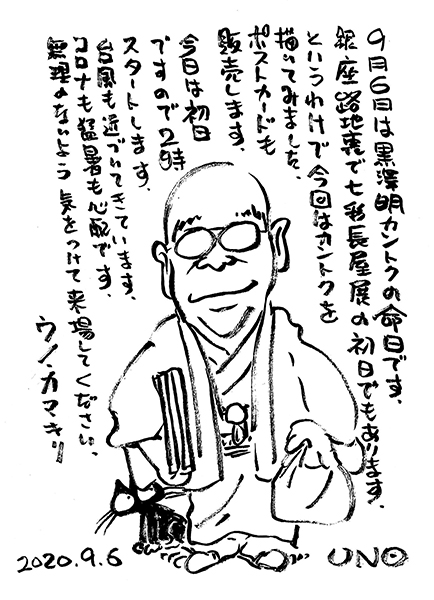 9月6日は黒澤明カントクの命日です.
銀座路地裏で七彩長屋展の初日でもあります.
というわけで今回はカントクを
描いてみました.
ポストカードも
販売します.
今日は初日
ですので2時
スタートします.
台風も近づいてきています.
コロナも猛暑も心配です.
無理のないよう気をつけて来場してください.
ウノ・カマキリ
2020.9.6
UNO